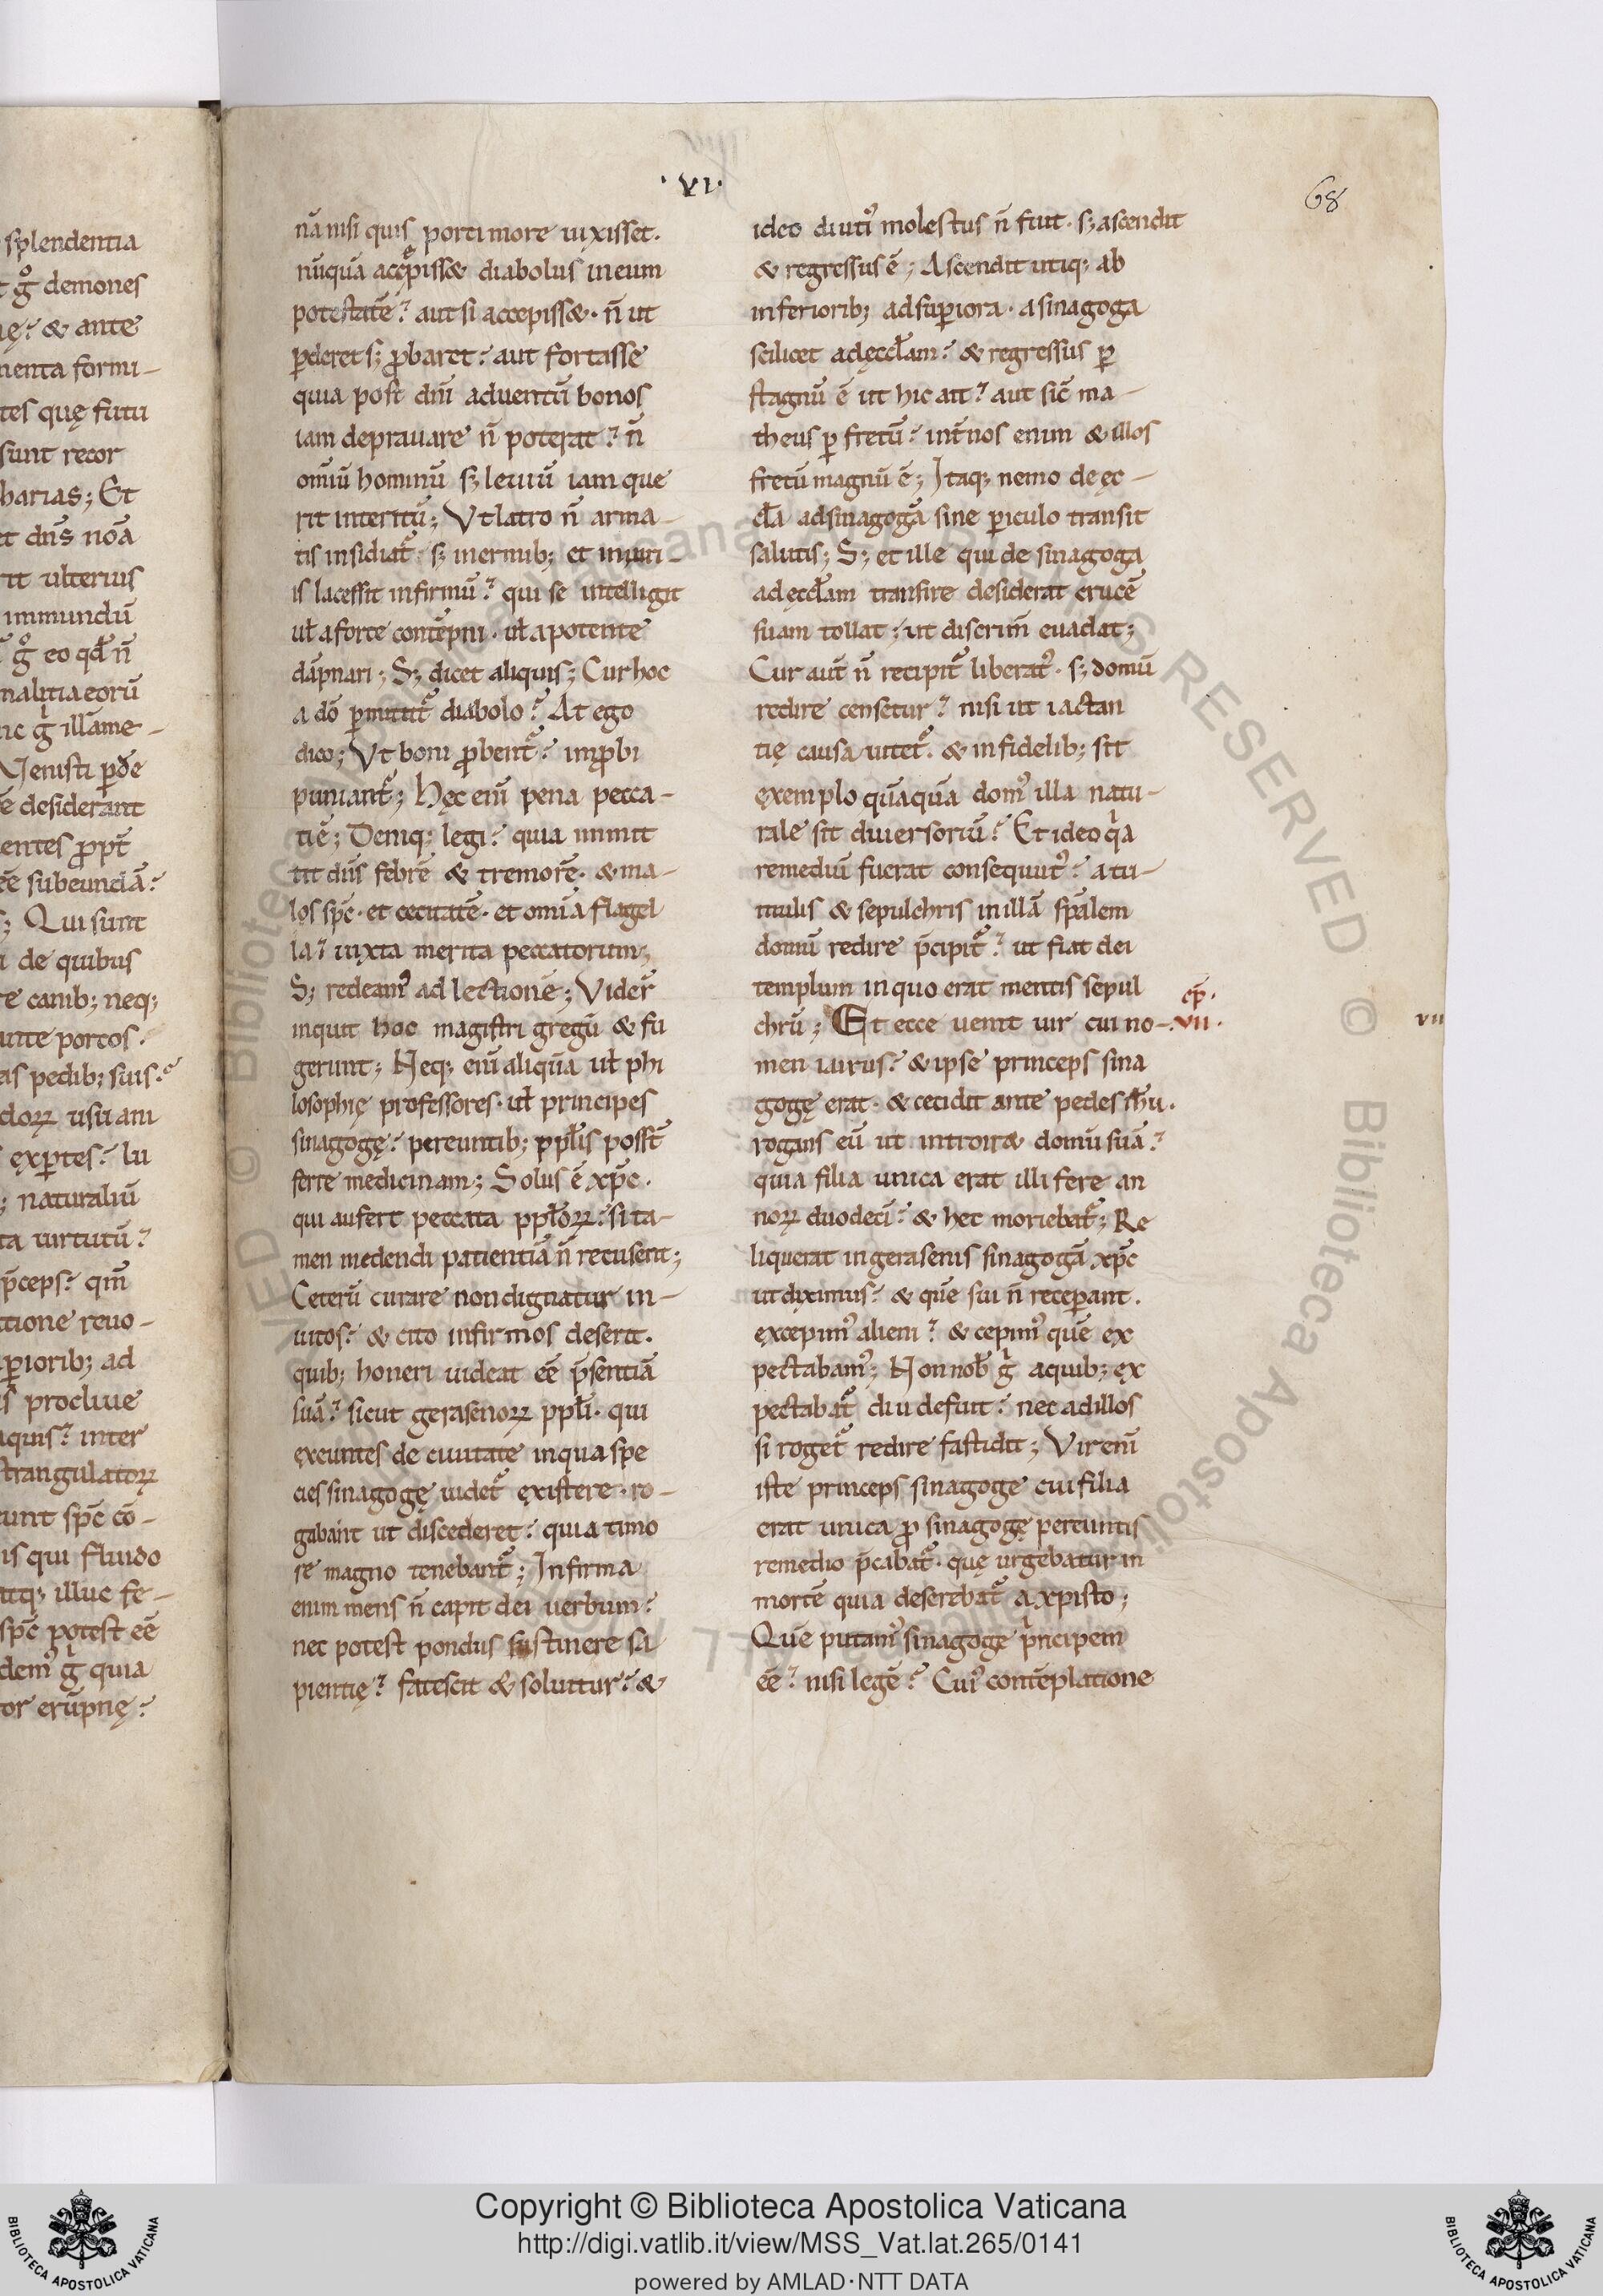 splendentia
g° demones
ę? & ante
menta formi-
tes quę futu
sunt recor
barias; Et
et dn̄s noā
rit ulterius
immundū
g° eo qđ n̄
malitia eorū
hic gͥ illāme-
Venisti ꝑđe
ē desiderant
entes ꝓpt̄
eē subeundā?
s; Qui sunt
de quibus
re canib; neq;
unte porcos.
as pedib; suis.
doꝝ usu ani
exꝑtes? lu
; naturaliū
ta uirtutū?
p̄ceps? qm̄
tione reuo-
ꝑiorib; ad
is procliue
aquis? inter
strangulatoꝝ
eunt sp̄c cō-
is qui fluido
atq; illuc fe-
sp̄c potest eē
demꝰ gͥ quia
tor erūpnę?
·VI·
68
nā nisi quis porci more uixisset.
nūquā accęp̄iss& diabolus in eum
potestatē? aut si accepiss&. n̄ ut
ꝑderet s; ꝓbaret? aut fortasse
quia post dn̄i aduentū bonos
iam deprauare n̄ poterat? n̄
om̄iū hominū s; leuiū iam que
rit interitū; Vt latro n̄ arma-
tis insidiat᷑ s; inermib; et iniuri-
is lacessit infirmū? qui se intelligit
uł a forte contēpni. uł a potente
dāpnari; S; dicet aliquis; Cur hoc
a dō ꝑmittit᷑ diabolo? At ego
dico; Vt boni ꝓbent᷑? imꝓbi
puniant᷑; Hęc eni᷑ pena pecca-
ti ē; Deniq; legi? quia inmit
tit dn̄s febrē & tremorē. & ma-
los sp̄c. et cecitatē. et om̄ia flagel
la? iuxta merita peccatorum;
S; redeamꝰ ad lectionē; Vider᷑
inquit hoc magistri gregū & fu
gerunt; Neq; eni᷑ aliquā uł phi
losophię professores. uł principes
sinagogę? pereuntib; ppłis posst̄
ferre medicinam; Solus ē xp̄c.
qui aufert peccata ppłoꝝ? si ta-
men medendi patientiā n̄ recusent;
Ceterū curare non dignatur in-
uitos? & cito infirmos deserit.
quib; honeri uideat eē p̄sentiā
suā? sicut gerasenoꝝ ppłi. qui
exeuntes de ciuitate in qua spe
cies sinagogę uidet᷑ existere. ro-
gabant ut discederet? quia timo
re magno tenebant᷑; Infirma
enim mens n̄ capit dei uerbum?
nec potest pondus sustinere sa
pientię? fatescit & soluitur? &
ideo diutiꝰ molestus n̄ fuit. s; ascendit
& regressus ē; Ascendit utiq; ab
inferiorib; ad suꝑiora. a sinagoga
scilicet ad ęccłam? & regressus ꝑ
stagnū ē ut hic ait? aut sic̄ ma-
theus ꝑ fretū? int̄ nos enim & illos
fretū magnū ē; Itaq; nemo de ęc-
cła ad sinagogā sine ꝑiculo transit
salutis; S; et ille qui de sinagoga
ad ęccłam transire desiderat crucē
suam tollat; ut discrim̄ euadat;
Cur aut̄ n̄ recipit᷑ liberatꝰ. s; domū
redire censetur? nisi ut iactan
tię causa uitet᷑. & infidelib; sit
exemplo quāquā domꝰ illa natu-
rale sit diuersoriū? Et ideo qͥa
remediū fuerat consequutꝰ? a tu-
mulis & sepulchris in illā sp̄alem
domū redire p̄cipit᷑? ut fiat dei
templum in quo erat mentis sepul
chrū; Et ecce uenit uir cui no-
cp̄.
·VII·
vii
men iairus? & ipse princeps sina
gogę erat. & cecidit ante pedes ihu.
rogans eū ut intrar& domū suā?
quia filia unica erat illi fere an
noꝝ duodeci᷑? & hec moriebat᷑; Re
liquerat in gerasenis sinagogā xp̄c
ut diximus? & quē sui n̄ receꝑant.
excepimꝰ alieni? & cepimꝰ quē ex
pectabamꝰ; Non nob̄ gͥ a quib; ex
pectabat᷑ diu defuit? nec ad illos
si roget᷑ redire fastidit; Vir eni᷑
iste princeps sinagoge cui filia
erat unica ꝓ sinagogę pereuntis
remedio p̄cabat᷑. quę urgebatur in
mortē quia deserebat᷑ a xpisto;
Quē putamꝰ sinagoge pͥncipem
eē? nisi legē? Cuiꝰ contēplatione
Copyright © Biblioteca Apostolica Vaticana
http://digi.vatlib.it/view/MSS_Vat.lat.265/0141
powered by AMLAD·NTT DATA
BIBLIOTECA APOSTOLICA VATICANA
BIBLIOTECA APOSTOLICA VATICANA